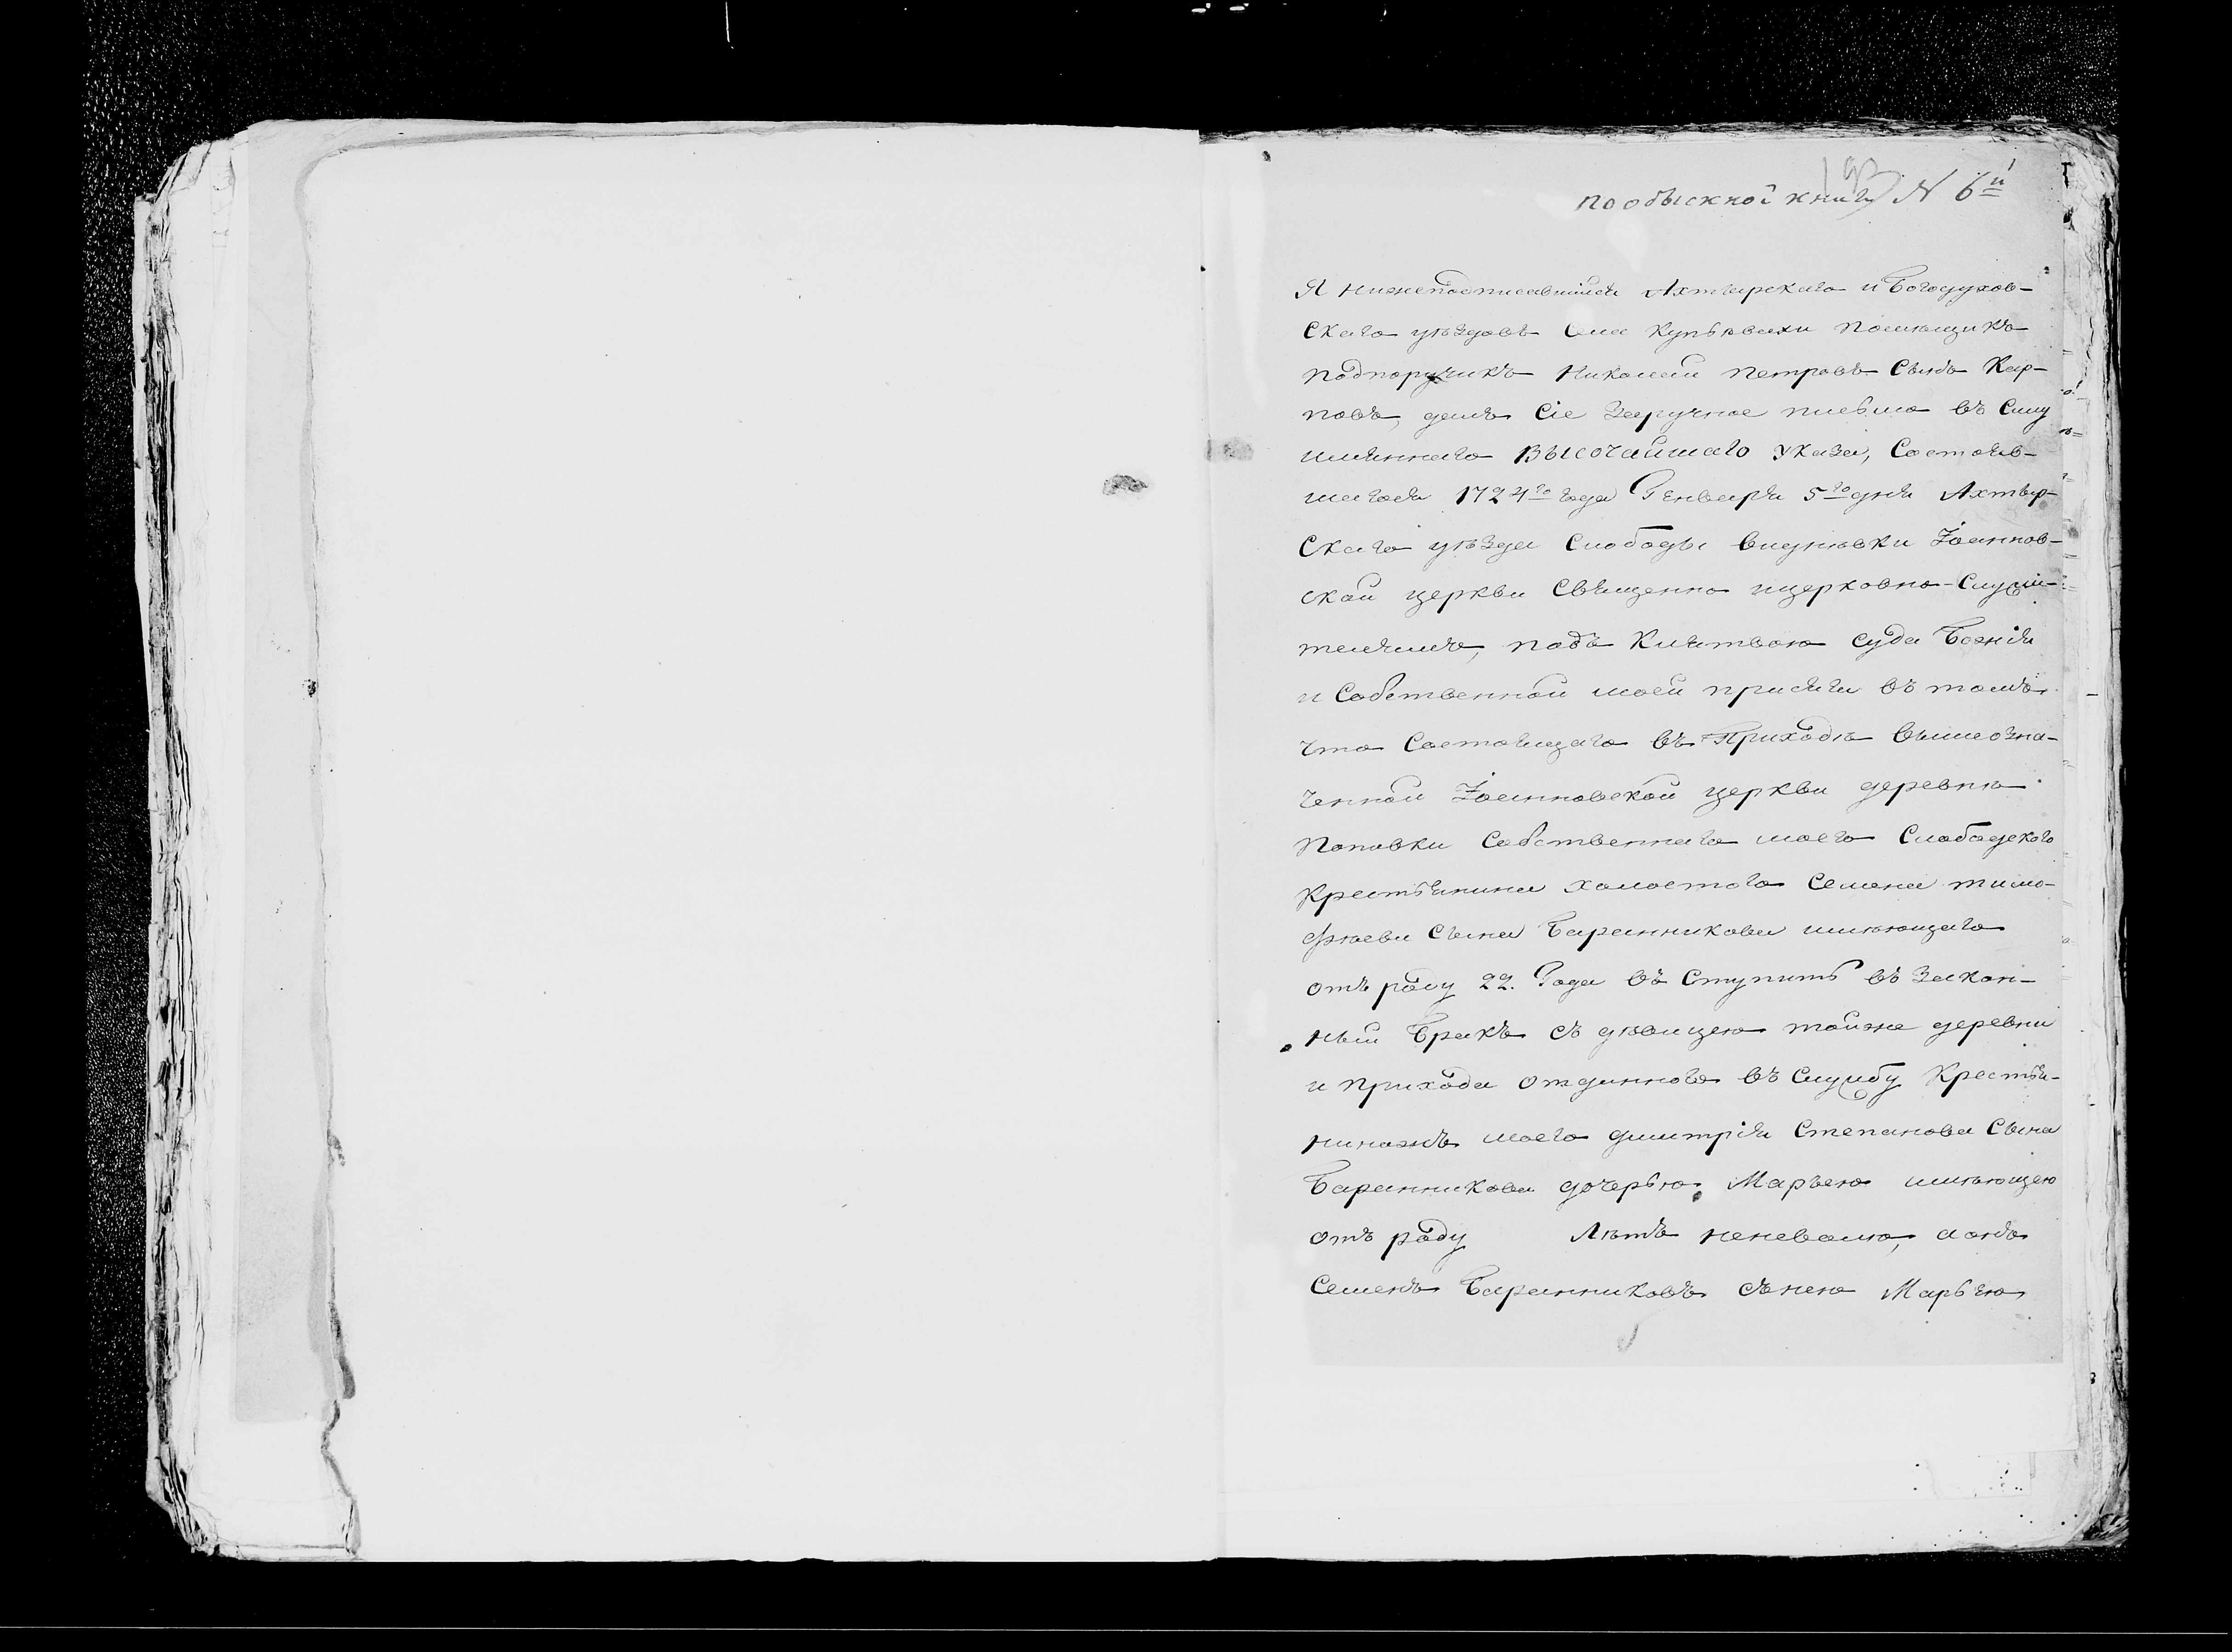 193
по обыскной книги N 6й
Я нижеподписавшійся Ахтырскаго и Богодухов-
скаго уѣздовъ Села Купьевахи Помѣщикъ
подпоручикъ Николай Петровъ Сынъ Кар-
повъ, далъ Сіе Заручное письмо въ Силу
имяннаго ВЫСОЧАЙШАГО Указа, Состояв-
шагося 1724го года Генваря 5го дня Ахтыр-
скаго уѣзда Слободы Видновки Іоаннов-
ской церкви Священно ицерковно-Служи-
телямъ, подъ Клятвою суда Божія
и Собственной моей присяги въ томъ
что Состоящаго въ Приходѣ вышеозна-
ченной Іоанновской церкви деревнѣ
Поповки Собственнаго моего Слободскаго
Крестьянина холостого Семена тимо-
фѣева Сына Баранникова имѣющаго
отъ роду 22. Года въ Ступить въ Закон-
ный Бракъ съ дѣвицею тойже деревни
и прихода отданного въ Службу Крестья-
нинажъ моего дмитрія Степанова Сына
Баранникова дочерью Марьею имѣющею
отъ роду Лѣтъ неневолю, аонъ
Семенъ Баранниковъ сънею Марьею